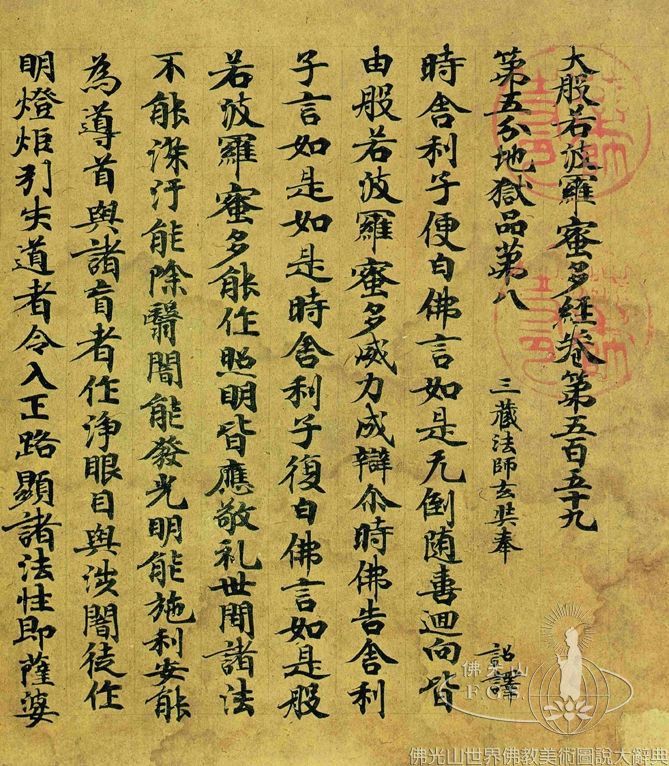 大般若波羅蜜多經卷第五百五十九
第五分地獄品第八 三藏法師玄奘奉 詔譯
時舍利子便白佛言如是无倒随喜迴向皆
由般若波羅蜜多威力成辯尒時佛告舍利
子言如是如是時舍利子復白佛言如是般
若波羅蜜多能作照明皆應敬礼世間諸法
不能染汙能除翳闇能發光明能施利安能
為導首與諸盲者作淨眼目與涉闇徒作
明燈炬引失道者令入正路顯諸法性即薩婆
佛光山
FGS
佛光山世界佛教美術圖說大辭典